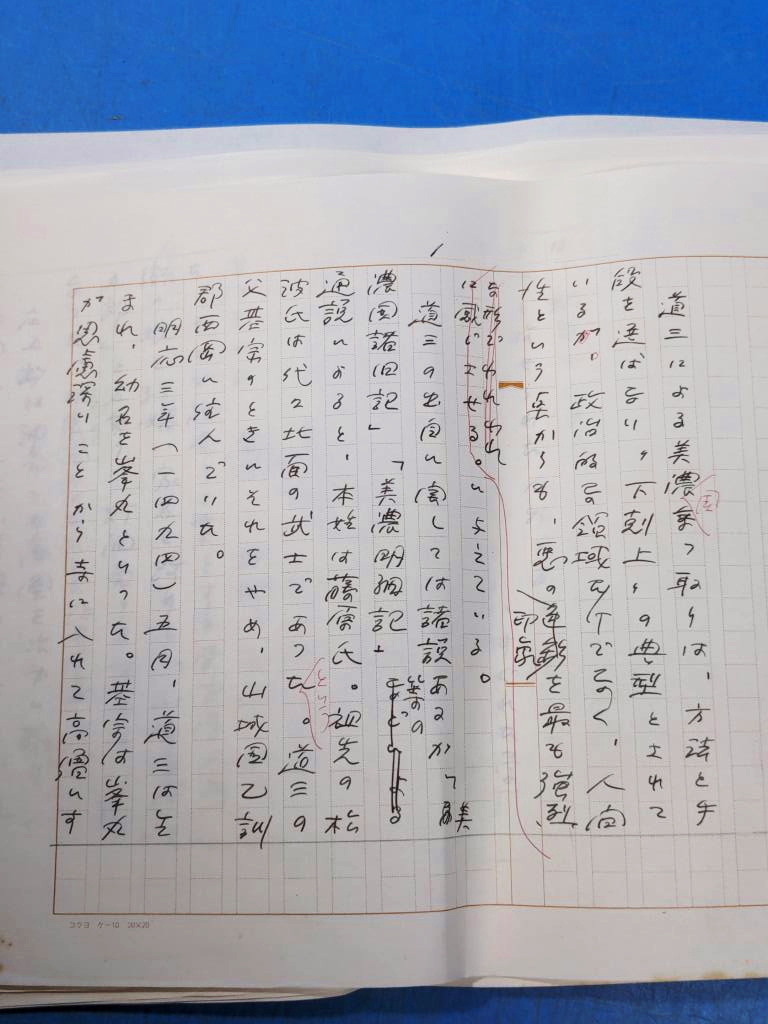 1
道三による美濃乗っ取りは、方法と手
国
段を選ばない〝下剋上〟の典型とされて
いるが、政治的な領域だけでなく、人間
性という点からも、悪の
印象
を最も強烈
な形でわれわれ
に感じさせる。
にしている。
道三の出自に関しては諸説あるが「美
濃国諸旧記」「美濃明細記」
等の
通説によると、本姓は藤原氏。祖先の松
波氏は代々北面の武士であった。道三の
という
父基宗のときにそれをやめ、山城国乙訓
郡西岡に住んでいた。
明応三年(一四九四)五月、道三は生
まれ、幼名を峯丸といった。基宗は峯丸
が思慮深いことから寺に入れて高僧にす
コクヨ ケー10 20×20